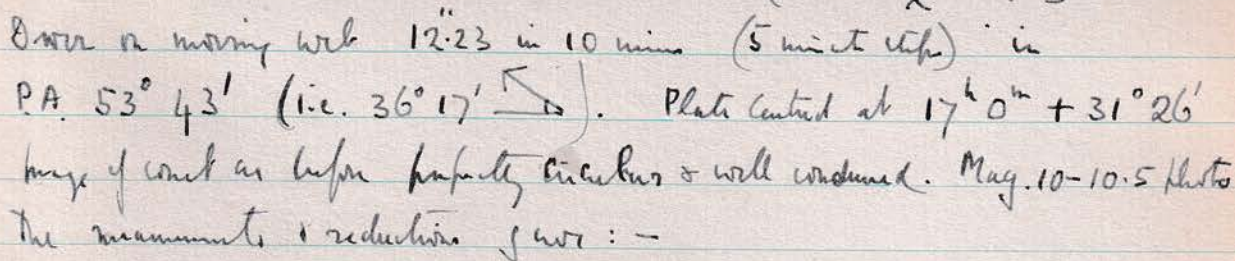 Driven on moving web 12".23 in 10 mins (5 minute steps) in
P.A. 53° 43' (i.e. 36° 17' ). Plate centred at 17ʰ 0ᵐ + 31° 26'
Image of comet as before perfectly circular & well condensed. Mag. 10-10.5 photo
The measurements & reductions gave : -